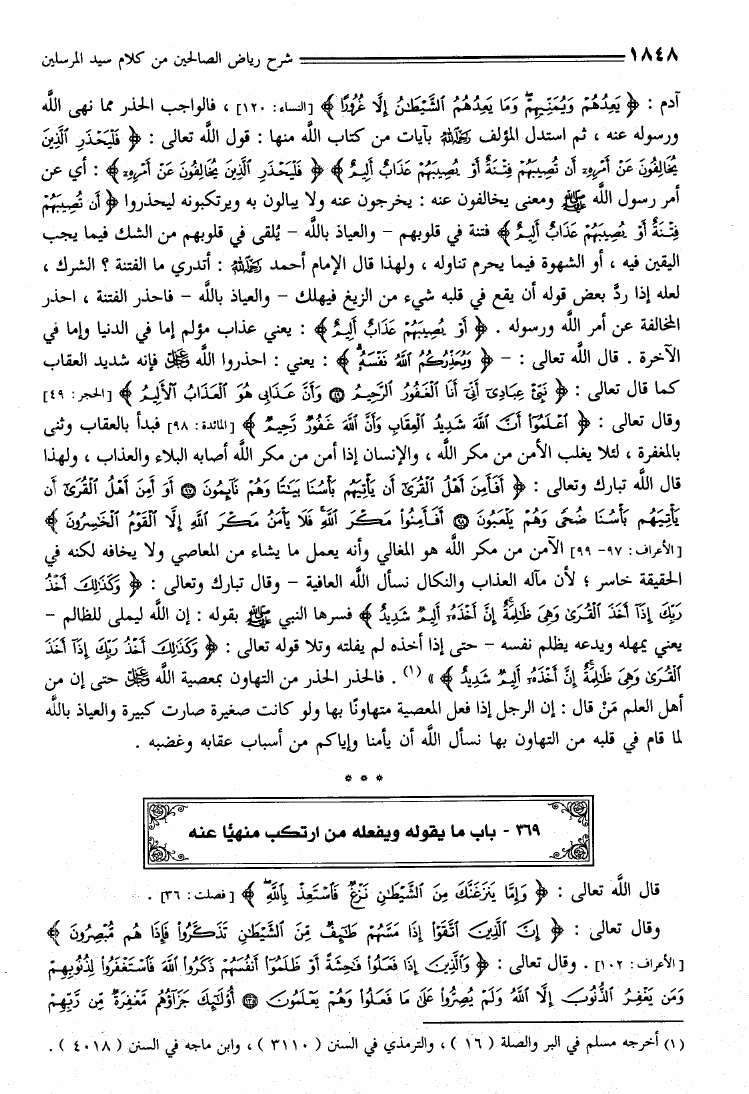 ١٨٤٨ شرح رياض الصالحين من كلام سيد المرسلين
آدم : ﴿ يَعِدُهُمْ وَيُمَنِّيهِمْ وَمَا يَعِدُهُمُ الشَّيْطَانُ إِلَّا غُرُورًا ﴾ [النساء: ١٢٠] ، فالواجب الحذر مما نهى الله
ورسوله عنه ، ثم استدل المؤلف رحمه الله بآيات من كتاب الله منها : قول الله تعالى : ﴿ فَلْيَحْذَرِ الَّذِينَ
يُخَالِفُونَ عَنْ أَمْرِهِ أَن تُصِيبَهُمْ فِتْنَةٌ أَوْ يُصِيبَهُمْ عَذَابٌ أَلِيمٌ ﴾ ﴿ فَلْيَحْذَرِ الَّذِينَ يُخَالِفُونَ عَنْ أَمْرِهِ ﴾ : أي عن
أمر رسول الله ﷺ ومعنى يخالفون عنه : يخرجون عنه ولا يبالون به ويرتكبونه ليحذروا ﴿ أَن تُصِيبَهُمْ
فِتْنَةٌ أَوْ يُصِيبَهُمْ عَذَابٌ أَلِيمٌ ﴾ فتنة في قلوبهم – والعياذ بالله – يُلقى في قلوبهم من الشك فيما يجب
اليقين فيه ، أو الشهوة فيما يحرم تناوله ، ولهذا قال الإمام أحمد رحمه الله : أتدري ما الفتنة ؟ الشرك ،
لعله إذا ردَّ بعض قوله أن يقع في قلبه شيء من الزيغ فيهلك – والعياذ بالله – فاحذر الفتنة ، احذر
المخالفة عن أمر الله ورسوله . ﴿ أَوْ يُصِيبَهُمْ عَذَابٌ أَلِيمٌ ﴾ : يعني عذاب مؤلم إما في الدنيا وإما في
الآخرة . قال الله تعالى : – ﴿ وَيُحَذِّرُكُمُ اللَّهُ نَفْسَهُ ﴾ : يعني : احذروا الله ﷻ فإنه شديد العقاب
كما قال تعالى : ﴿ نَبِّئْ عِبَادِي أَنِّي أَنَا الْغَفُورُ الرَّحِيمُ ۝ وَأَنَّ عَذَابِي هُوَ الْعَذَابُ الْأَلِيمُ ﴾ [الحجر: ٤٩]
وقال تعالى : ﴿ اعْلَمُوا أَنَّ اللَّهَ شَدِيدُ الْعِقَابِ وَأَنَّ اللَّهَ غَفُورٌ رَّحِيمٌ ﴾ [المائدة: ٩٨] فبدأ بالعقاب وثنى
بالمغفرة ، لئلا يغلب الأمن من مكر الله ، والإنسان إذا أمن من مكر الله أصابه البلاء والعذاب ، ولهذا
قال الله تبارك وتعالى : ﴿ أَفَأَمِنَ أَهْلُ الْقُرَى أَن يَأْتِيَهُم بَأْسُنَا بَيَاتًا وَهُمْ نَائِمُونَ ۝ أَوَ أَمِنَ أَهْلُ الْقُرَى أَن
يَأْتِيَهُم بَأْسُنَا ضُحًى وَهُمْ يَلْعَبُونَ ۝ أَفَأَمِنُوا مَكْرَ اللَّهِ فَلَا يَأْمَنُ مَكْرَ اللَّهِ إِلَّا الْقَوْمُ الْخَاسِرُونَ ﴾
[الأعراف: ٩٧– ٩٩] الآمن من مكر الله هو المغالي وأنه يعمل ما يشاء من المعاصي ولا يخافه لكنه في
الحقيقة خاسر ؛ لأن مآله العذاب والنكال نسأل الله العافية – وقال تبارك وتعالى : ﴿ وَكَذَلِكَ أَخْذُ
رَبِّكَ إِذَا أَخَذَ الْقُرَى وَهِيَ ظَالِمَةٌ إِنَّ أَخْذَهُ أَلِيمٌ شَدِيدٌ ﴾ فسرها النبي ﷺ بقوله : إن الله ليملى للظالم –
يعني يمهله ويدعه يظلم نفسه – حتى إذا أخذه لم يفلته وتلا قوله تعالى : ﴿ وَكَذَلِكَ أَخْذُ رَبِّكَ إِذَا أَخَذَ
الْقُرَى وَهِيَ ظَالِمَةٌ إِنَّ أَخْذَهُ أَلِيمٌ شَدِيدٌ ﴾ » (١) . فالحذر الحذر من التهاون بمعصية الله ﷻ حتى إن من
أهل العلم مَنْ قال : إن الرجل إذا فعل المعصية متهاونًا بها ولو كانت صغيرة صارت كبيرة والعياذ بالله
لما قام في قلبه من التهاون بها نسأل الله أن يأمنا وإياكم من أسباب عقابه وغضبه .
* * *
٣٦٩ - باب ما يقوله ويفعله من ارتكب منهيًا عنه
قال الله تعالى : ﴿ وَإِمَّا يَنزَغَنَّكَ مِنَ الشَّيْطَانِ نَزْغٌ فَاسْتَعِذْ بِاللَّهِ ﴾ [فصلت: ٣٦] .
وقال تعالى : ﴿ إِنَّ الَّذِينَ اتَّقَوْا إِذَا مَسَّهُمْ طَائِفٌ مِّنَ الشَّيْطَانِ تَذَكَّرُوا فَإِذَا هُم مُّبْصِرُونَ ﴾
[الأعراف: ١٠٢] . وقال تعالى : ﴿ وَالَّذِينَ إِذَا فَعَلُوا فَاحِشَةً أَوْ ظَلَمُوا أَنفُسَهُمْ ذَكَرُوا اللَّهَ فَاسْتَغْفَرُوا لِذُنُوبِهِمْ
وَمَن يَغْفِرُ الذُّنُوبَ إِلَّا اللَّهُ وَلَمْ يُصِرُّوا عَلَى مَا فَعَلُوا وَهُمْ يَعْلَمُونَ ۝ أُولَئِكَ جَزَاؤُهُم مَّغْفِرَةٌ مِّن رَّبِّهِمْ
(١) أخرجه مسلم في البر والصلة ( ١٦ ) ، والترمذي في السنن ( ٣١١٠ ) ، وابن ماجه في السنن ( ٤٠١٨ ) .